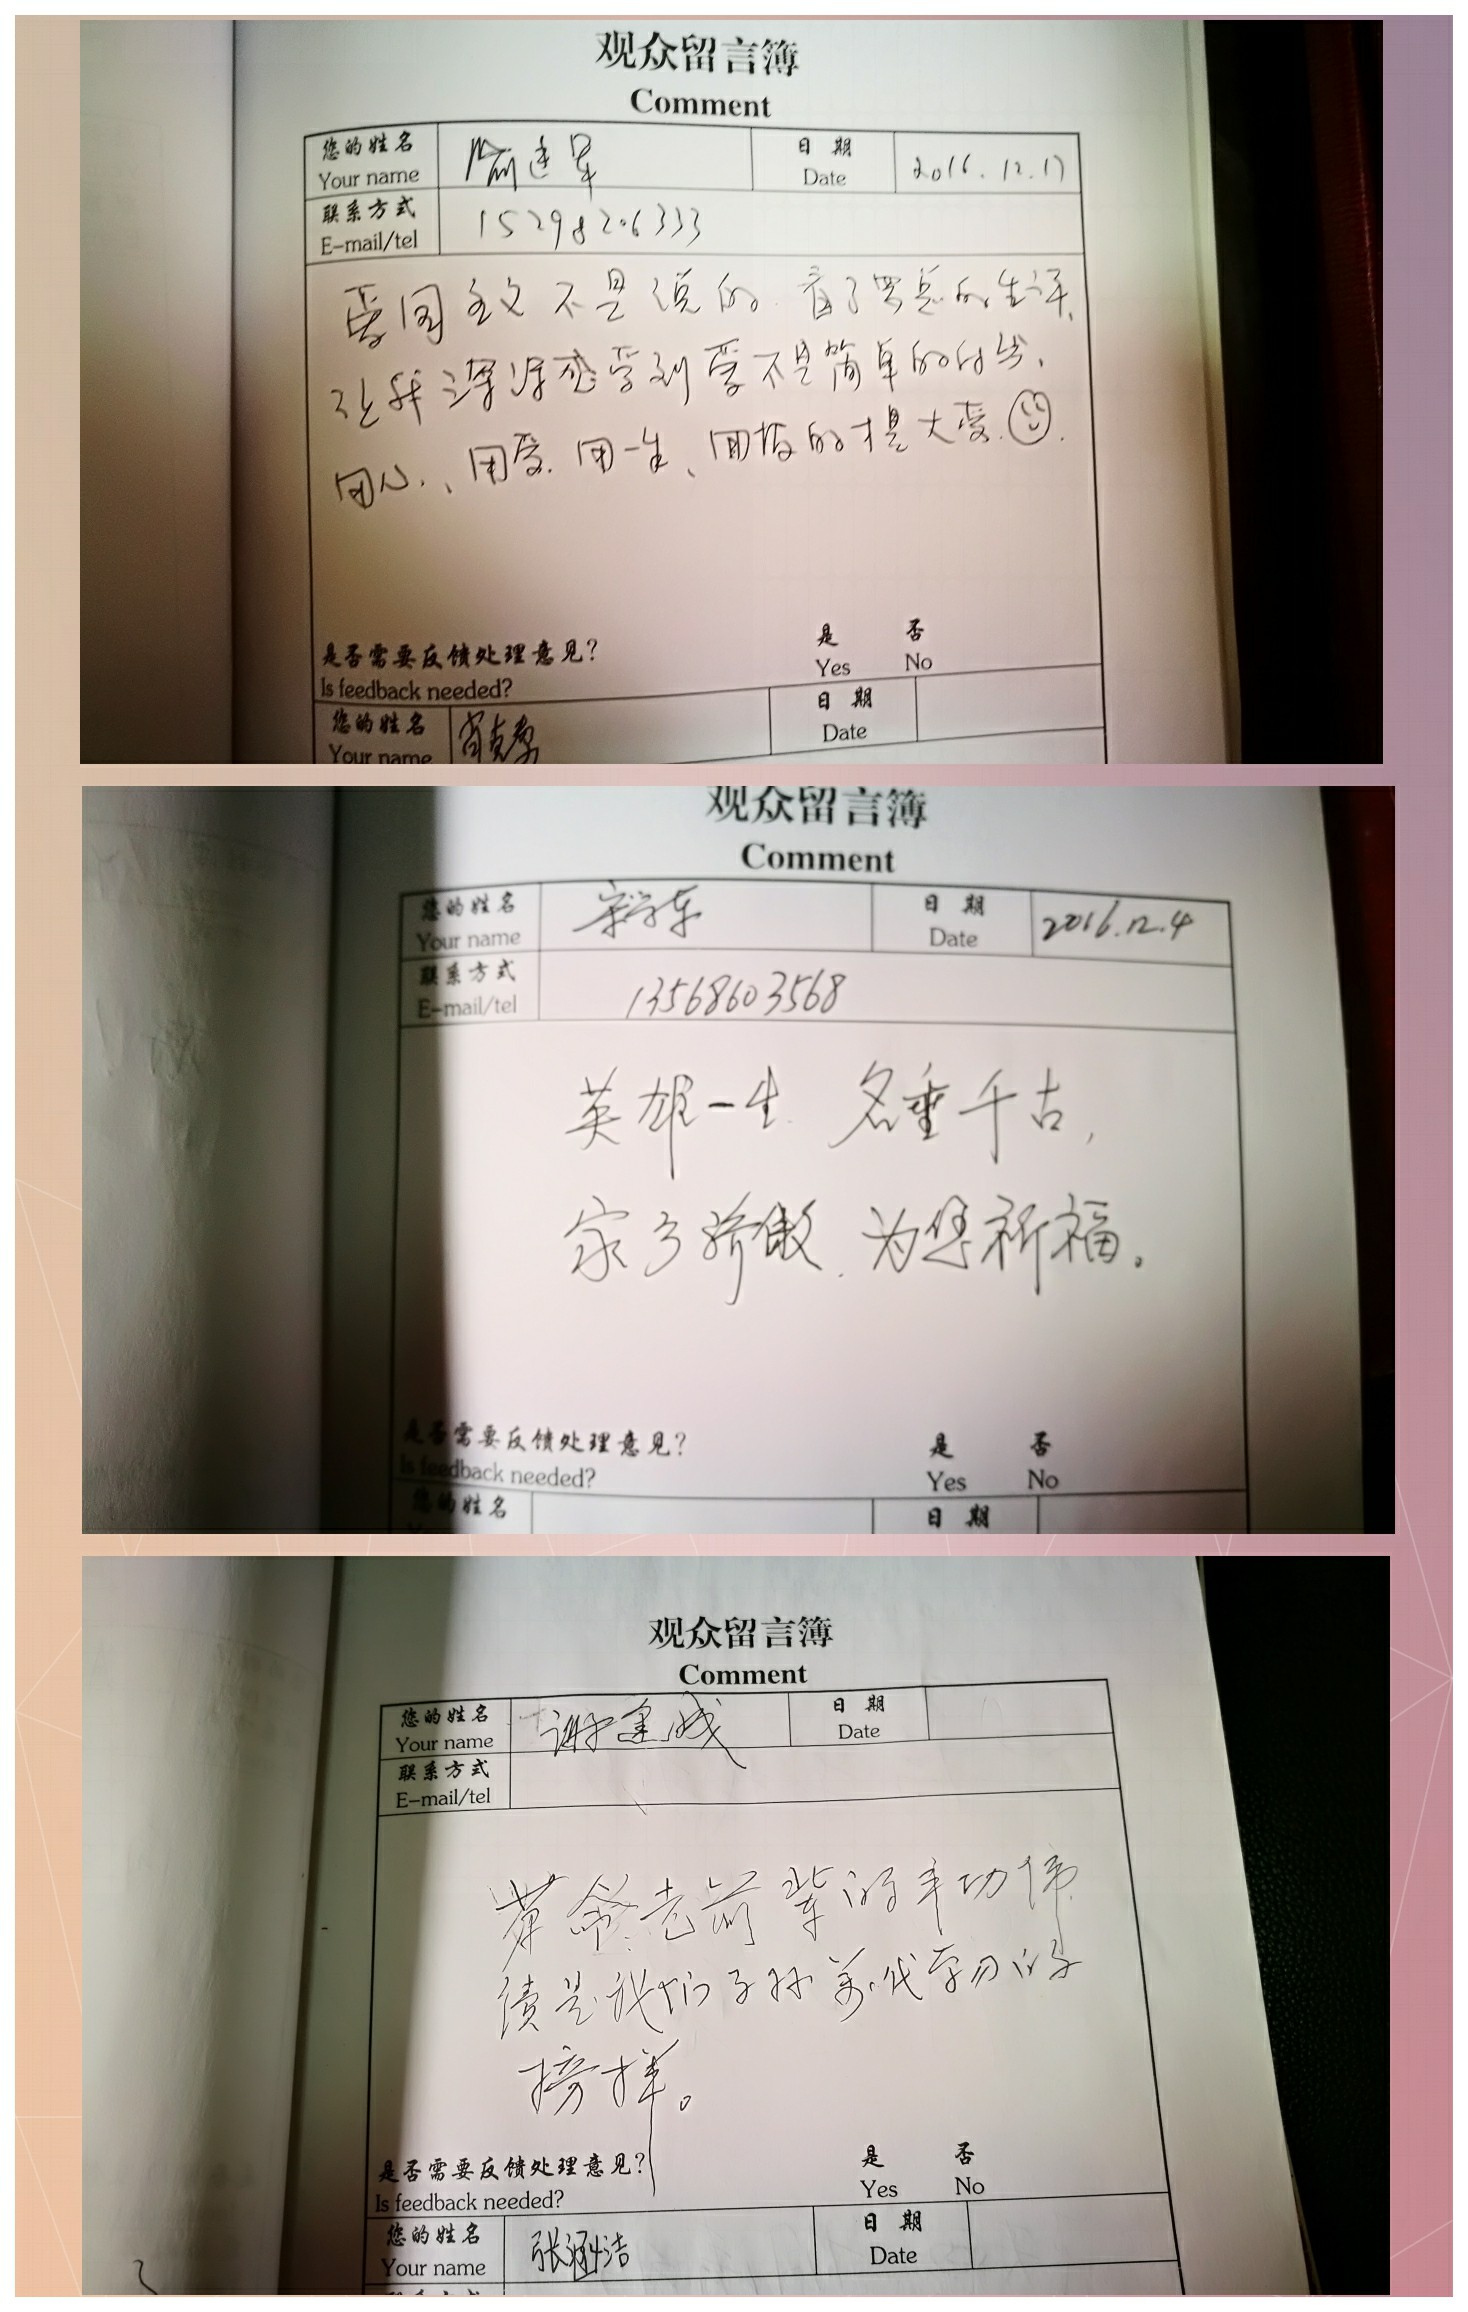 观众留言簿
Comment
您的姓名
Your name
喻远军
日 期
Date
2016.12.17
联系方式
E-mail/tel
15298206333
爱国主义不是说的.看了罗总的生评,
让我深深感受到爱不是简单的付出,
用心、用爱.用一生、回报的才是大爱.
是否需要反馈处理意见?
Is feedback needed?
是 否
Yes No
您的姓名
Your name
日 期
Date
观众留言簿
Comment
您的姓名
Your name
宋学东
日 期
Date
2016.12.4
联系方式
E-mail/tel
13568603568
英雄一生.名垂千古,
家乡骄傲.为您祈福。
是否需要反馈处理意见?
Is feedback needed?
是 否
Yes No
您的姓名
日 期
观众留言簿
Comment
您的姓名
Your name
谢建成
日 期
Date
联系方式
E-mail/tel
革命老前辈的丰功伟
绩是我们子孙万代学习的
榜样。
是否需要反馈处理意见?
Is feedback needed?
是 否
Yes No
您的姓名
Your name
张涵洁
日 期
Date